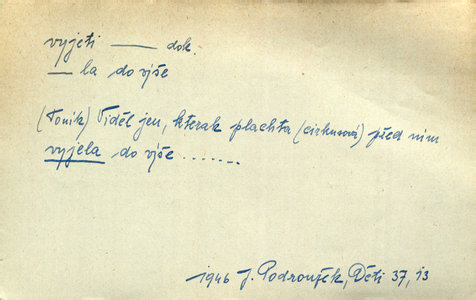 vyjeti —— dok.
— la do výše
(Toník) Viděl jen, kterak plachta (cirkusová) před ním
vyjela do výše .......
1946 J. Podroužek, Děti 37, 13